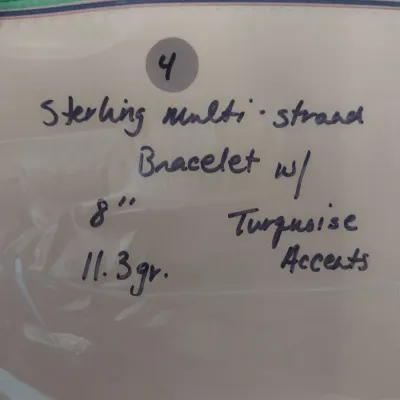 4
Sterling multi-strand
Bracelet w/
8" Turquoise
11.3gr. Accents